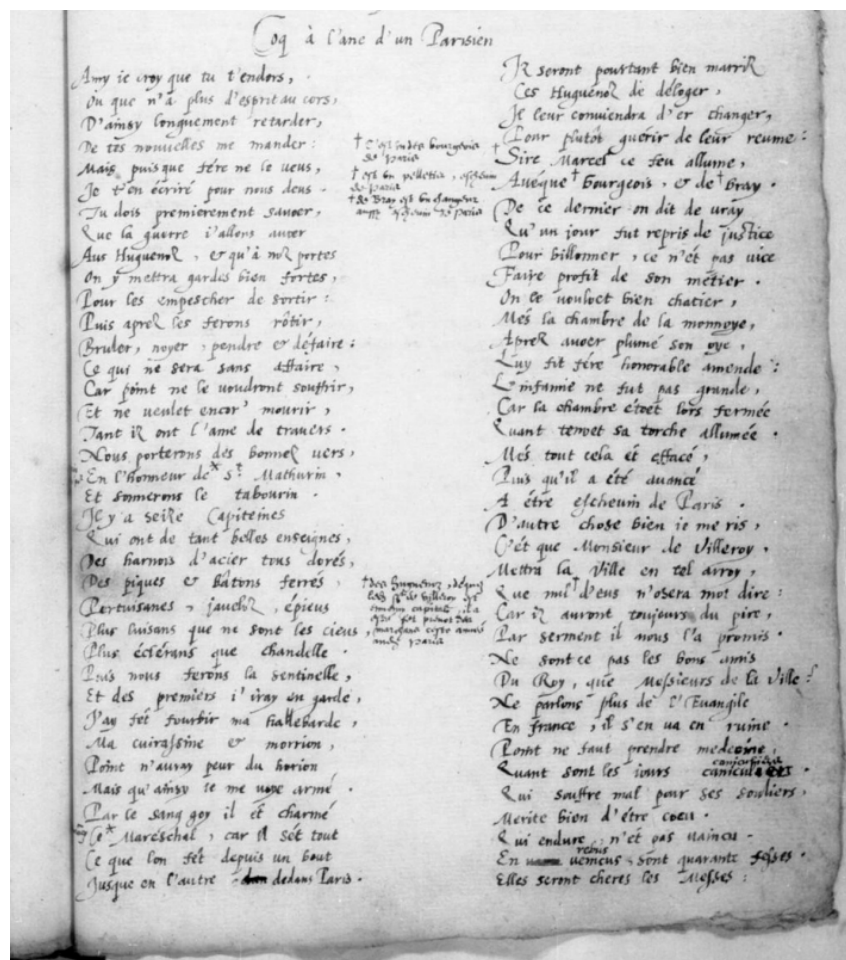 Coq à l'ane d'un Parisien
Amy ie croy que tu t'endors,
Ou que n'a plus d'esprit au cors,
D'ainsy longuement retarder,
De tes nouvelles me mander:
Mais puisque fére ne le veus,
Je t'en écriré pour nous deus.
Tu dois premierement savoer,
Que la guerre i'allons avoer
Aus Huguenoz, & qu'à noz portes
On y mettra gardes bien fortes,
Pour les empescher de sortir:
Puis aprez les ferons rôtir,
Bruler, noyer, pendre & défaire:
Ce qui ne sera sans affaire,
Car point ne le voudront souffrir,
Et ne veulet encor' mourir,
Tant iz ont l'ame de travers.
Nous porterons des bonnez vers,
En l'honneur de St. Mathurin,
Et sonnerons le tabourin.
Il y a seize Capiteines
Qui ont de tant belles enseignes,
Des harnois d'acier tous dorés,
Des piques & bâtons ferrés,
Pertuisanes, jauelôz, épieus
Plus luisans que ne sont les cieus,
Plus éclérans que chandelle.
Puis nous ferons la sentinelle,
Et des premiers i'iray en garde,
J'ay fét fourbir ma hallebarde,
Ma cuirassine & morrion,
Point n'auray peur du horion
Mais qu'ainsy ie me voye armé.
Par le sang goy il ét charmé
Ce Maréschal, car il sét tout
Ce que lon fét depuis un bout
Jusque en l'autre dedans Paris.
† C'est un dés bourgeois
de Paris
† est un pelletier, eschevin
de Paris
† de Bray est un changeur
aussi eschevin de Paris
† des huguenoz, desquelz
Iz seront pourtant bien marriz
Ces Huguenoz de déloger,
Il leur conviendra d'er changer,
Pour plutôt guérir de leur reume:
Sire Marcel ce feu allume,
Avéque † Bourgeois, & de † Bray.
De ce dernier on dit de vray
Qu'un jour fut repris de justice
Pour billonner, ce n'ét pas vice
Faire profit de son métier.
On le vouloet bien chatier,
Més la chambre de la monnoye,
Aprez avoer plumé son oye,
Luy fit fére honorable amende:
L'infamie ne fut pas grande,
Car la chambre étoet lors fermée
Quant tenoet sa torche allumée.
Més tout cela ét effacé,
Puis qu'il a été avancé
A étre escheuin de Paris.
D'autre chose bien ie me ris,
C'ét que Monsieur de Villeroy.
Mettra la Ville en tel arroy,
Que nul † d'eus n'osera mot dire:
Car iz auront toujours du pire,
Par serment il nous l'a promis.
Ne sont ce pas les bons amis
Du Roy, que Messieurs de la Ville?
Ne parlons plus de l'Evangile
En France, il s'en va en ruine.
Point ne faut prendre medecine,
Quant sont les iours caniculiers.
Qui souffre mal pour ses souliers,
Merite bien d'étre cocu.
Qui endure, n'ét pas vaincu.
En sont quarante fesses.
Elles seront cheres les Messes: